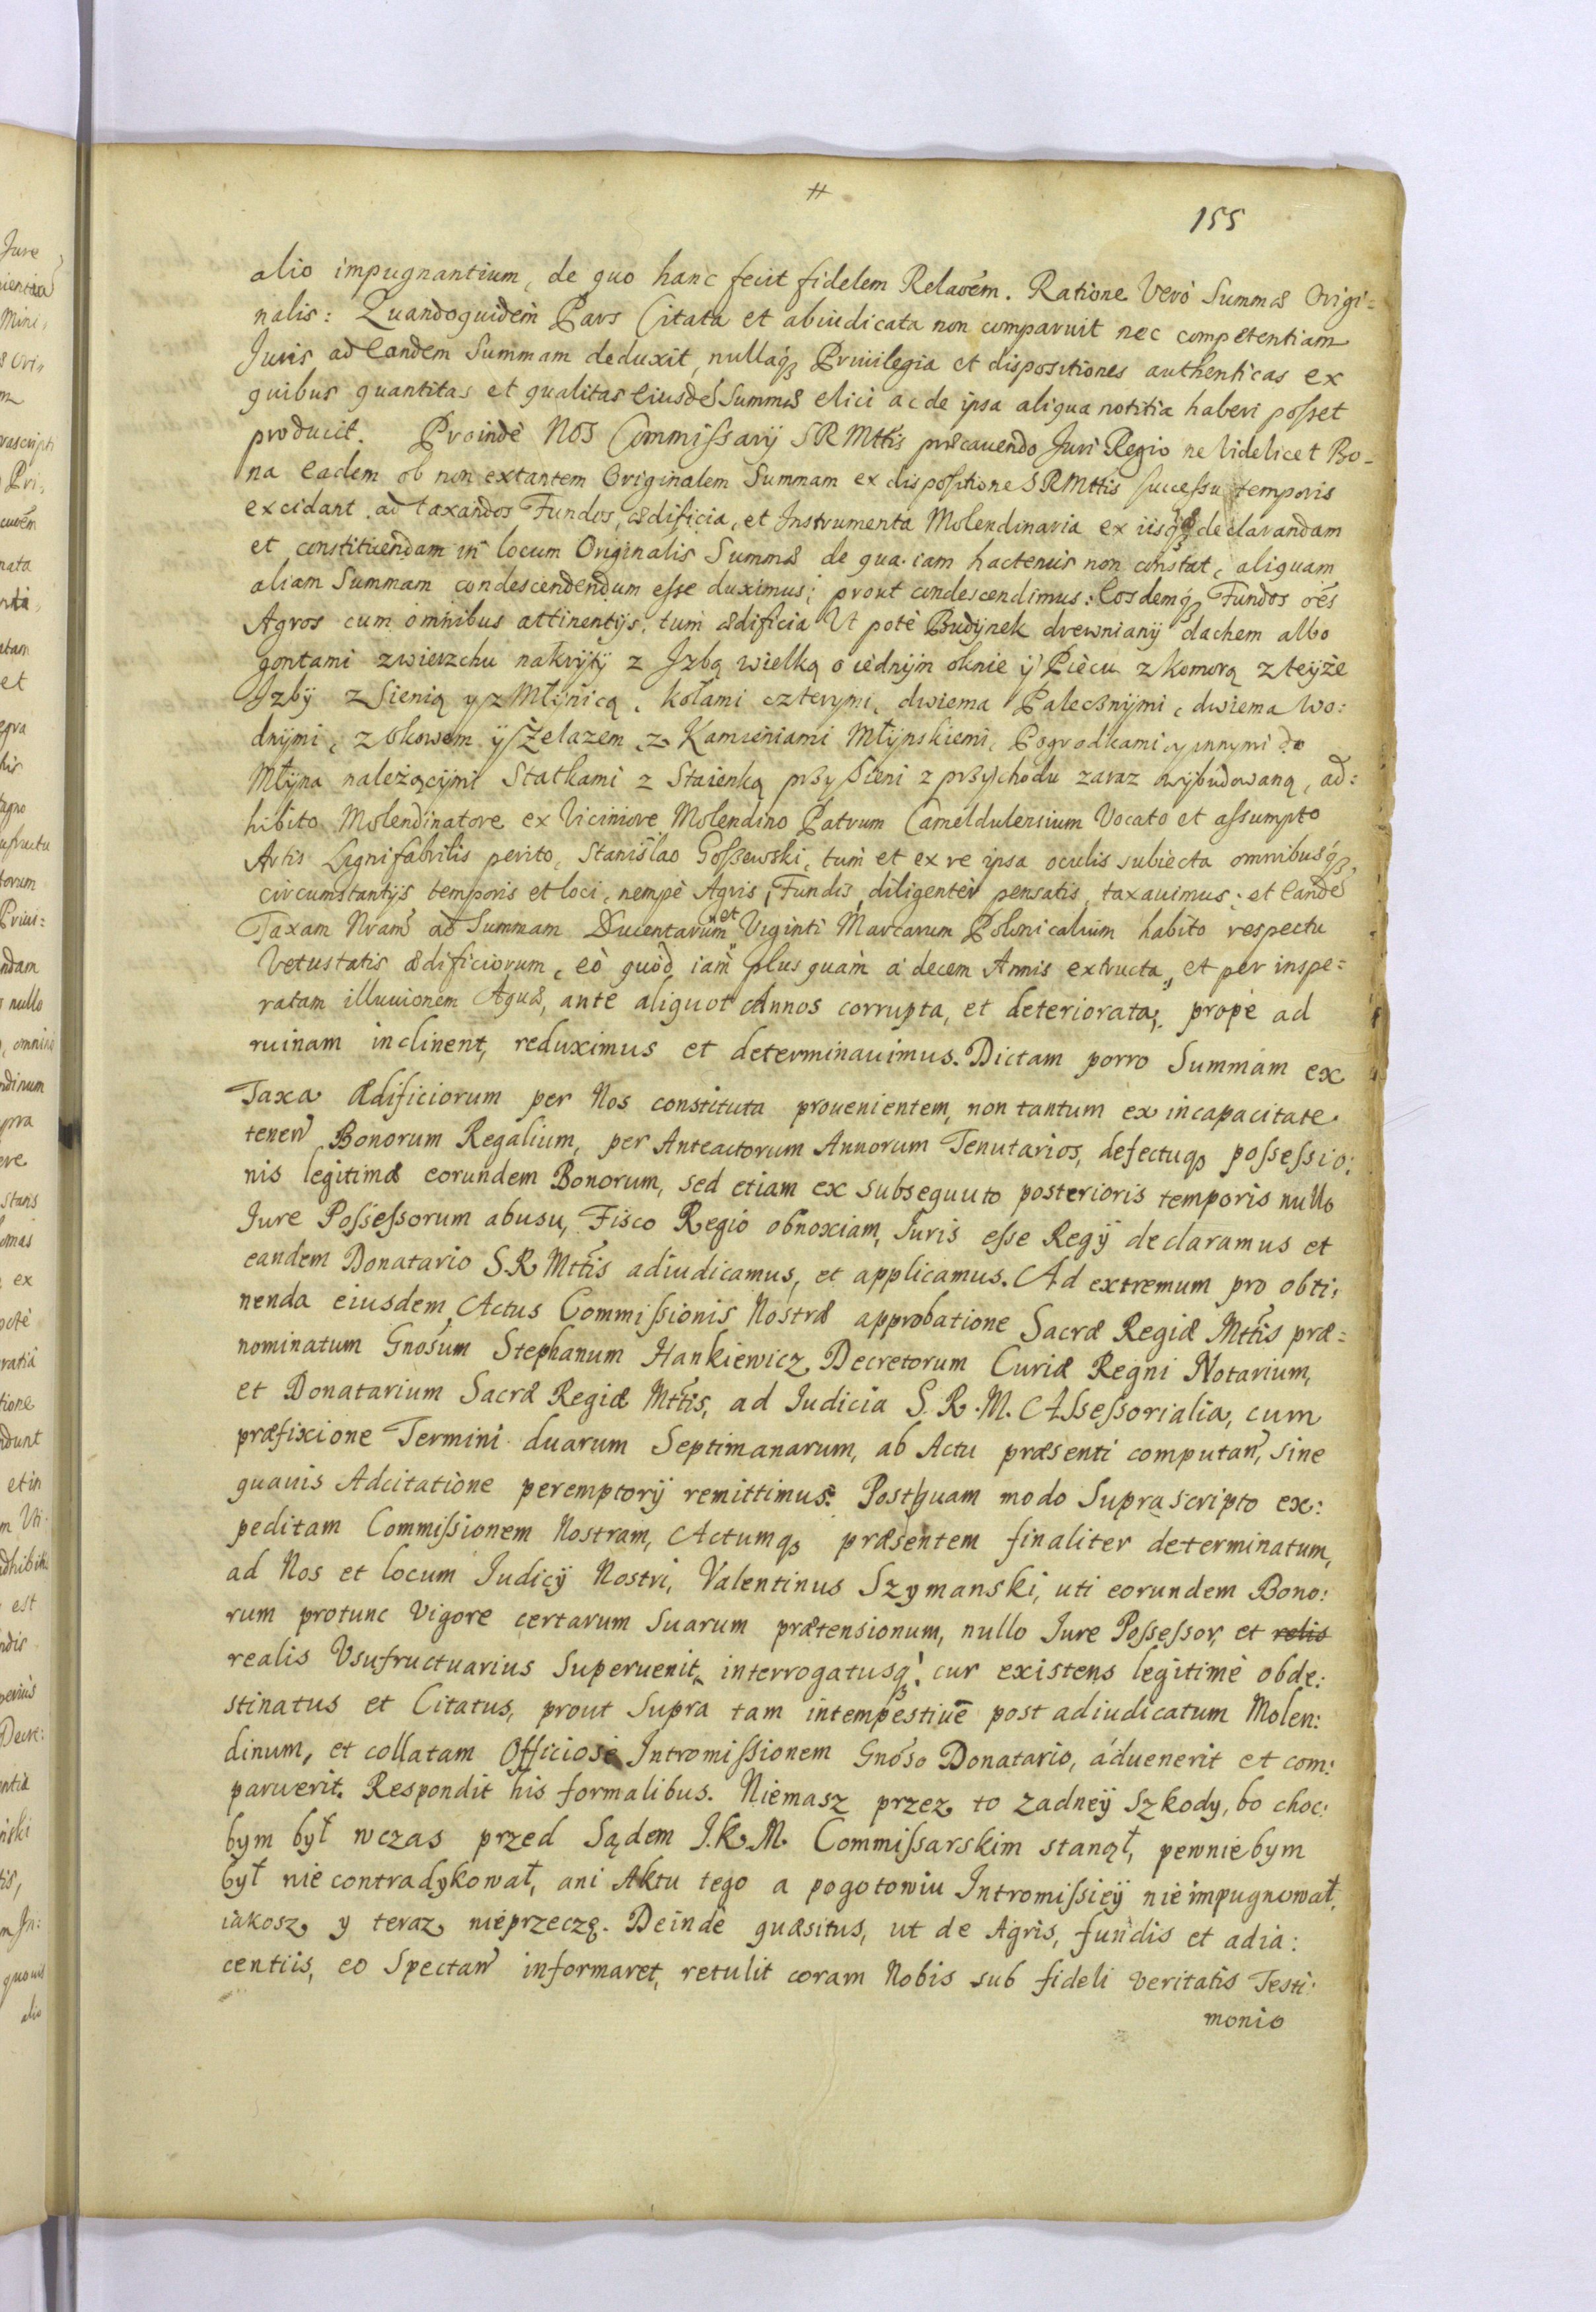 #
155
alio impugnantium, de quo hanc fecit fidelem Relaõem. Ratione Verò Summæ Origi=
nalis: Quandoquidem Pars Citata et abiudicata non comparuit nec competentiam
Juris ad Eandem Summam deduxit, nullaq₃ Priuilegia et dispositiones authenticas ex
quibus quantitas et qualitas Eiusdẽ Summæ elici ac de ipsa aliqua notitia haberi poſset
producit. Proindè NOS Commiſsarÿ SRMttis præcauendo Juri Regio ne Videlicet Bo-
na Eadem ob non extantem Originalem Summam ex dispoſitione SRMttis ſucceſsu temporis
excidant, ad taxandos Fundos, ædificia, et Instrumenta Molendinaria ex iisq₃ declarandam
et constituendam in locum Originalis Summæ de qua iam hactenus non constat, aliquam
aliam Summam condescendendum eſse duximus; prout condescendimus: Eosdemq₃ Fundos oẽs
Agros cum omnibus attinentÿs, tum ædificia Ut potè Budÿnek drewnianÿ dachem albo
gontami zwierzchu nakrÿtÿ z Jzbą wielką o iednÿm oknie ÿ Piècu z komorą z teÿże
Jzbÿ z Sienią y z Młÿnicą, kołami czterymi, dwiema Palecznÿmi, dwiema Wo:
dnÿmi, z okowem ÿ Żelazem z Kamieniami Młÿnskiemi, Pogrodkami, y innymi do
Młÿna należącÿmi Statkami z Staienką przy Sieni z przychodu zaraz wÿbudowaną, ad:
hibito Molendinatore ex Viciniore Molendino Patrum Cameldulensium Vocato et aſsumpto
Artis Lignifabrilis perito, Stanislao Goſzewski, tum et ex re ipsa oculis subiecta omnibusq₃
circumstantÿs temporis et loci, nempè Agris, Fundis, diligentèr pensatis, taxauimus; et Eandẽ
Taxam Nram̃ ad Summam Ducentarum et Viginti Marcarum Polonicalium habito respectu
Vetustatis ædificiorum, eò quòd iam plus quàm à decem Annis extructa, et per inspe=
ratam illuuionem Aquæ, ante aliquot Annos corrupta, et deteriorata, propè ad
ruinam inclinent, reduximus et determinauimus. Dictam porro Summam ex
Taxa Ædificiorum per Nos constituta prouenientem, non tantum ex incapacitate
tenen̄ Bonorum Regalium, per Anteactorum Annorum Tenutarios, defectuq₃ poſseſsio:
nis legitimæ eorundem Bonorum, sed etiam ex subsequuto posterioris temporis nullo
Iure Poſseſsorum abusu, Fisco Regio obnoxiam, Iuris eſse Regÿ declaramus et
eandem Donatario S.R.Mttis adiudicamus, et applicamus. Ad extremum pro obti:
nenda eiusdem Actus Commiſsionis Nostræ approbatione Sacræ Regiæ Mttis præ=
nominatum Gnosum Stephanum Hankiewicz Decretorum Curiæ Regni Notarium,
et Donatarium Sacræ Regiæ Mttis, ad Iudicia S.R.M. Aſseſsorialia, cum
præfixione Termini duarum Septimanarum, ab Actu præsenti computan̄, sine
quauis Adcitatione peremptorÿ remittimus. Postquam modo Suprascripto ex:
peditam Commiſsionem Nostram, Actumq₃ præsentem finaliter determinatum,
ad Nos et locum Iudicÿ Nostri, Valentinus Szymanski, uti eorundem Bono:
rum protunc Vigore certarum Suarum prætensionum, nullo Iure Poſseſsor, et relis
realis Vsufructuarius Superuenit, interrogatusq₃, cur existens legitimè obde:
stinatus et Citatus, prout Supra tam intempestiuè post adiudicatum Molen:
dinum, et collatam Officiosè Intromiſsionem Gnoso Donatario, aduenerit et com:
paruerit. Respondit his formalibus. Niemasz przez to zadneÿ Szkody, bo choc:
bym był wczas przed Sądem J.K.M. Commiſsarskim stanął, pewniebym
był niecontradykował, ani Aktu tego a pogotowiu Intromiſsieÿ nieimpugnował,
iakosz y teraz nieprzeczę. Deindè quæsitus, ut de Agris, fundis et adia:
centiis, eo Spectan̄ informaret, retulit coram Nobis sub fideli veritatis Testi:
monio